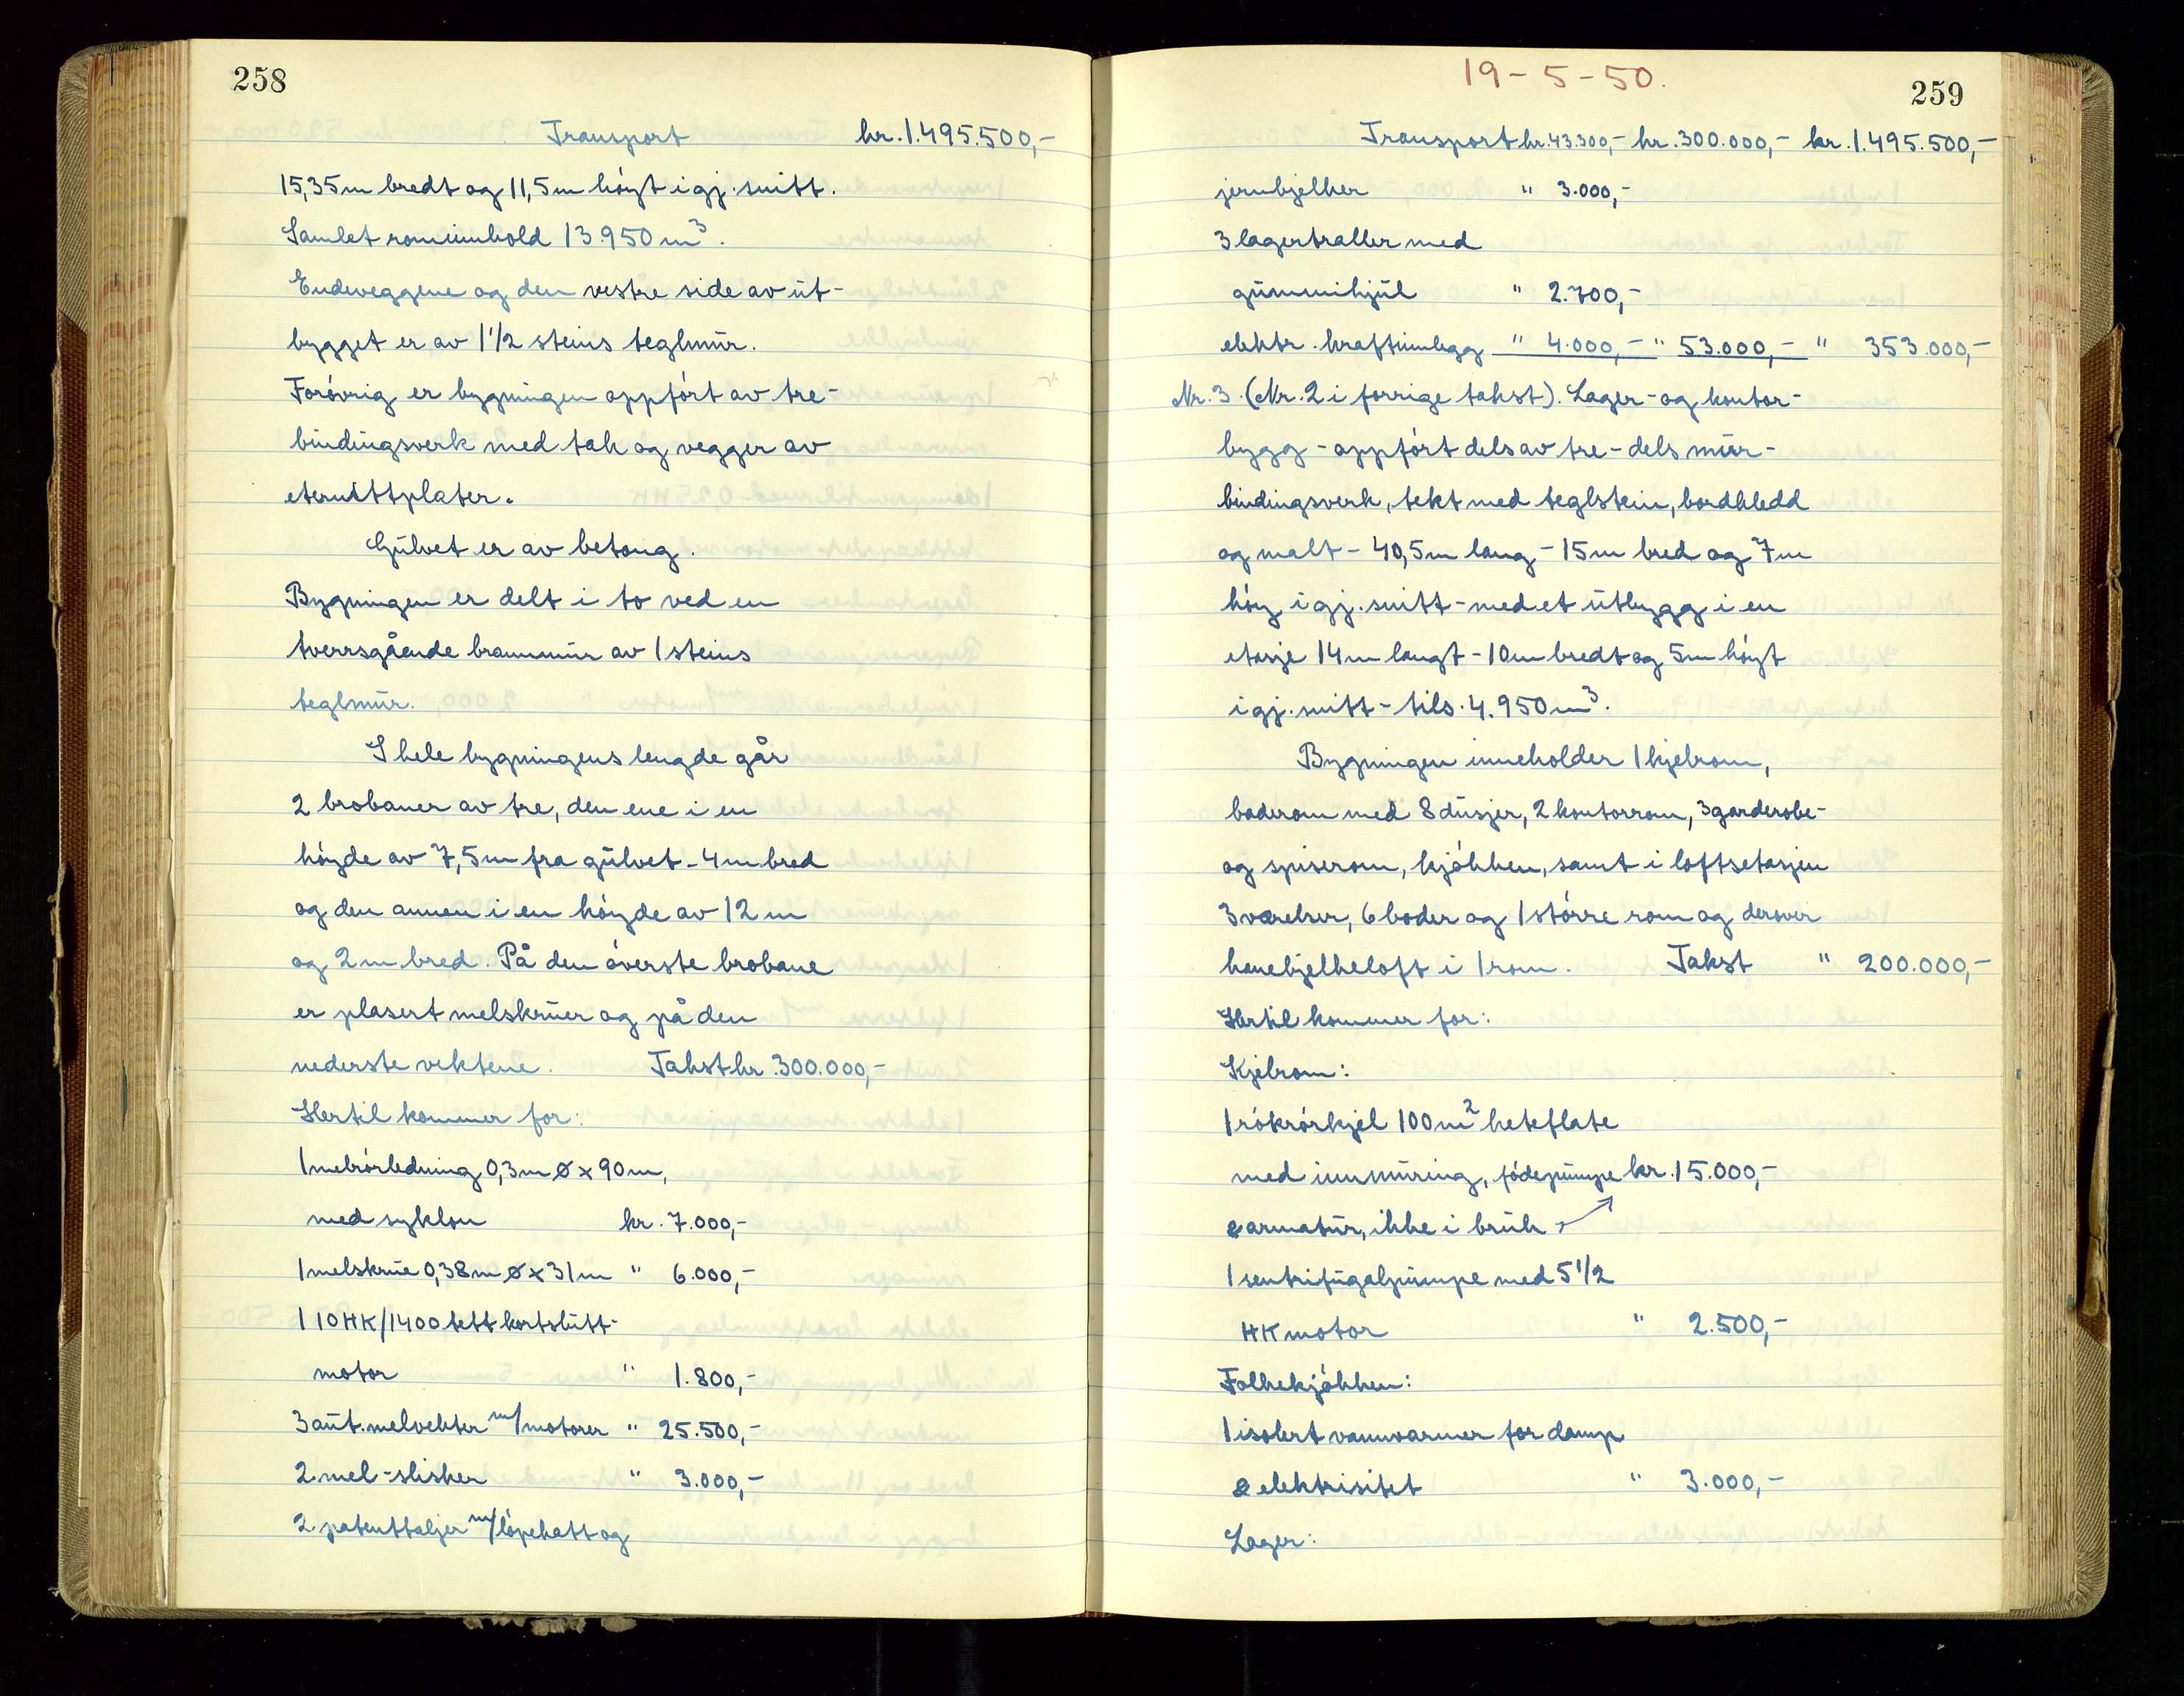 258
Transport kr. 1.495.500,-
15,35m bredt og 11,5m høyt i gj. snitt.
Samlet rominnhold 13.950 m³.
Endeveggene og den vestre side av ut-
bygget er av 1 1/2 steins teglmur.
Forøvrig er bygningen oppført av tre-
bindingsverk med tak og vegger av
eternittplater.
Gulvet er av betong.
Bygningen er delt i to ved en
tverrsgående brannmur av 1 steins
teglmur.
I hele bygningens lengde går
2 brobaner av tre, den ene i en
høyde av 7,5m fra gulvet - 4m bred
og den annen i en høyde av 12 m
og 2m bred. På den øverste brobane
er plasert melskruer og på den
nederste vektene. Takst kr. 300.000,-
Hertil kommer for:
1 melrørledning 0,3m ø x 90m,
med syklon kr. 7.000,-
1 melskrue 0,38m ø x 31m " 6.000,-
1 10HK/1400 tett kortslutt-
motor " 1.800,-
3 aut. melvekter m/motorer " 25.500,-
2 mel-slisker " 3.000,-
2 patenttaljer m/løpekatt og
19-5-50.
259
Transport kr. 43.300,- kr. 300.000,- kr. 1.495.500,-
jernbjelker " 3.000,-
3 lagertraller med
gummihjul " 2.700,-
elektr. kraftinnlegg " 4.000,- " 53.000,- " 353.000,-
Nr. 3. (Nr. 2 i forrige takst). Lager- og kontor-
bygg - oppført dels av tre - dels mur-
bindingsverk, tekt med teglstein, bordkledd
og malt - 40,5m lang - 15m bred og 7m
høy i gj. snitt - med et utbygg i en
etasje 14m langt - 10m bredt og 5m høyt
i gj. snitt - tils. 4.950 m³.
Bygningen inneholder 1 kjelrom,
baderom med 8 dusjer, 2 kontorrom, 3 garderobe-
og spiserom, kjøkken, samt i loftsetasjen
3 værelser, 6 boder og 1 større rom og derover
hanebjelkeloft i 1 rom. Takst " 200.000,-
Hertil kommer for:
Kjelrom:
1 røkrørkjel 100m² heteflate
med innmuring, fødepumpe kr. 15.000,-
& armatur, ikke i bruk
1 sentrifugalpumpe med 5 1/2
HK motor " 2.500,-
Folkekjøkken:
1 isolert vannvarmer for damp
& elektrisitet " 3.000,-
Lager: